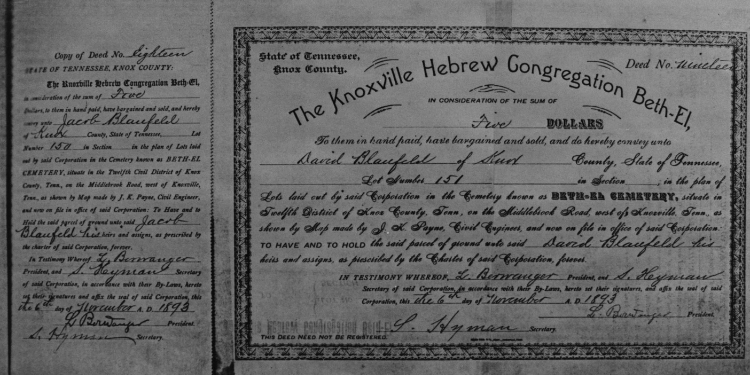 Copy of Deed No. Eighteen
STATE OF TENNESSEE, KNOX COUNTY:
The Knoxville Hebrew Congregation Beth-El,
in consideration of the sum of Five
Dollars, to them in hand paid, have bargained and sold, and hereby
convey unto Jacob Blaufeld
of Knox County, State of Tennessee, Lot
Number 150 in Section in the plan of Lots laid
out by said Corporation in the Cemetery known as BETH-EL
CEMETERY, situate in the Twelfth Civil District of Knox
County, Tenn., on the Middlebrook Road, west of Knoxville,
Tenn., as shown by Map made by J. K. Payne, Civil Engineer,
and now on file in office of said Corporation: To Have and to
Hold the said parcel of ground unto said Jacob
Blaufeld his heirs and assigns, as prescribed by the
charter of said Corporation, forever.
In Testimony Whereof L. Borwanger
President, and S. Heyman Secretary
of said Corporation, in accordance with their By-Laws, hereto
set their signatures and affix the seal of said Corporation, this
the 6th day of November A. D. 1893
L. Borwanger President.
S. Hyman Secretary.
State of Tennessee,
Knox County.
Deed No. Nineteen
The Knoxville Hebrew Congregation Beth-El,
IN CONSIDERATION OF THE SUM OF
Five DOLLARS
To them in hand paid, have bargained and sold, and do hereby convey unto
David Blaufeld of Knox County, State of Tennessee,
Lot Number 151 in Section in the plan of
Lots laid out by said Corporation in the Cemetery known as BETH-EL CEMETERY, situate in
Twelfth District of Knox County, Tenn., on the Middlebrook Road, west of Knoxville, Tenn., as
shown by Map made by J. K. Payne, Civil Engineer, and now on file in office of said Corporation
TO HAVE AND TO HOLD the said parcel of ground unto said David Blaufeld his
heirs and assigns, as prescribed by the Charter of said Corporation, forever.
IN TESTIMONY WHEREOF, L. Borwanger President, and S. Heyman
Secretary of said Corporation, in accordance with their By-Laws, hereto set their signatures, and affix the seal of said
Corporation, this the 6th day of November A. D. 1893
L. Borwanger President.
S. Hyman Secretary.
THIS DEED NEED NOT BE REGISTERED.